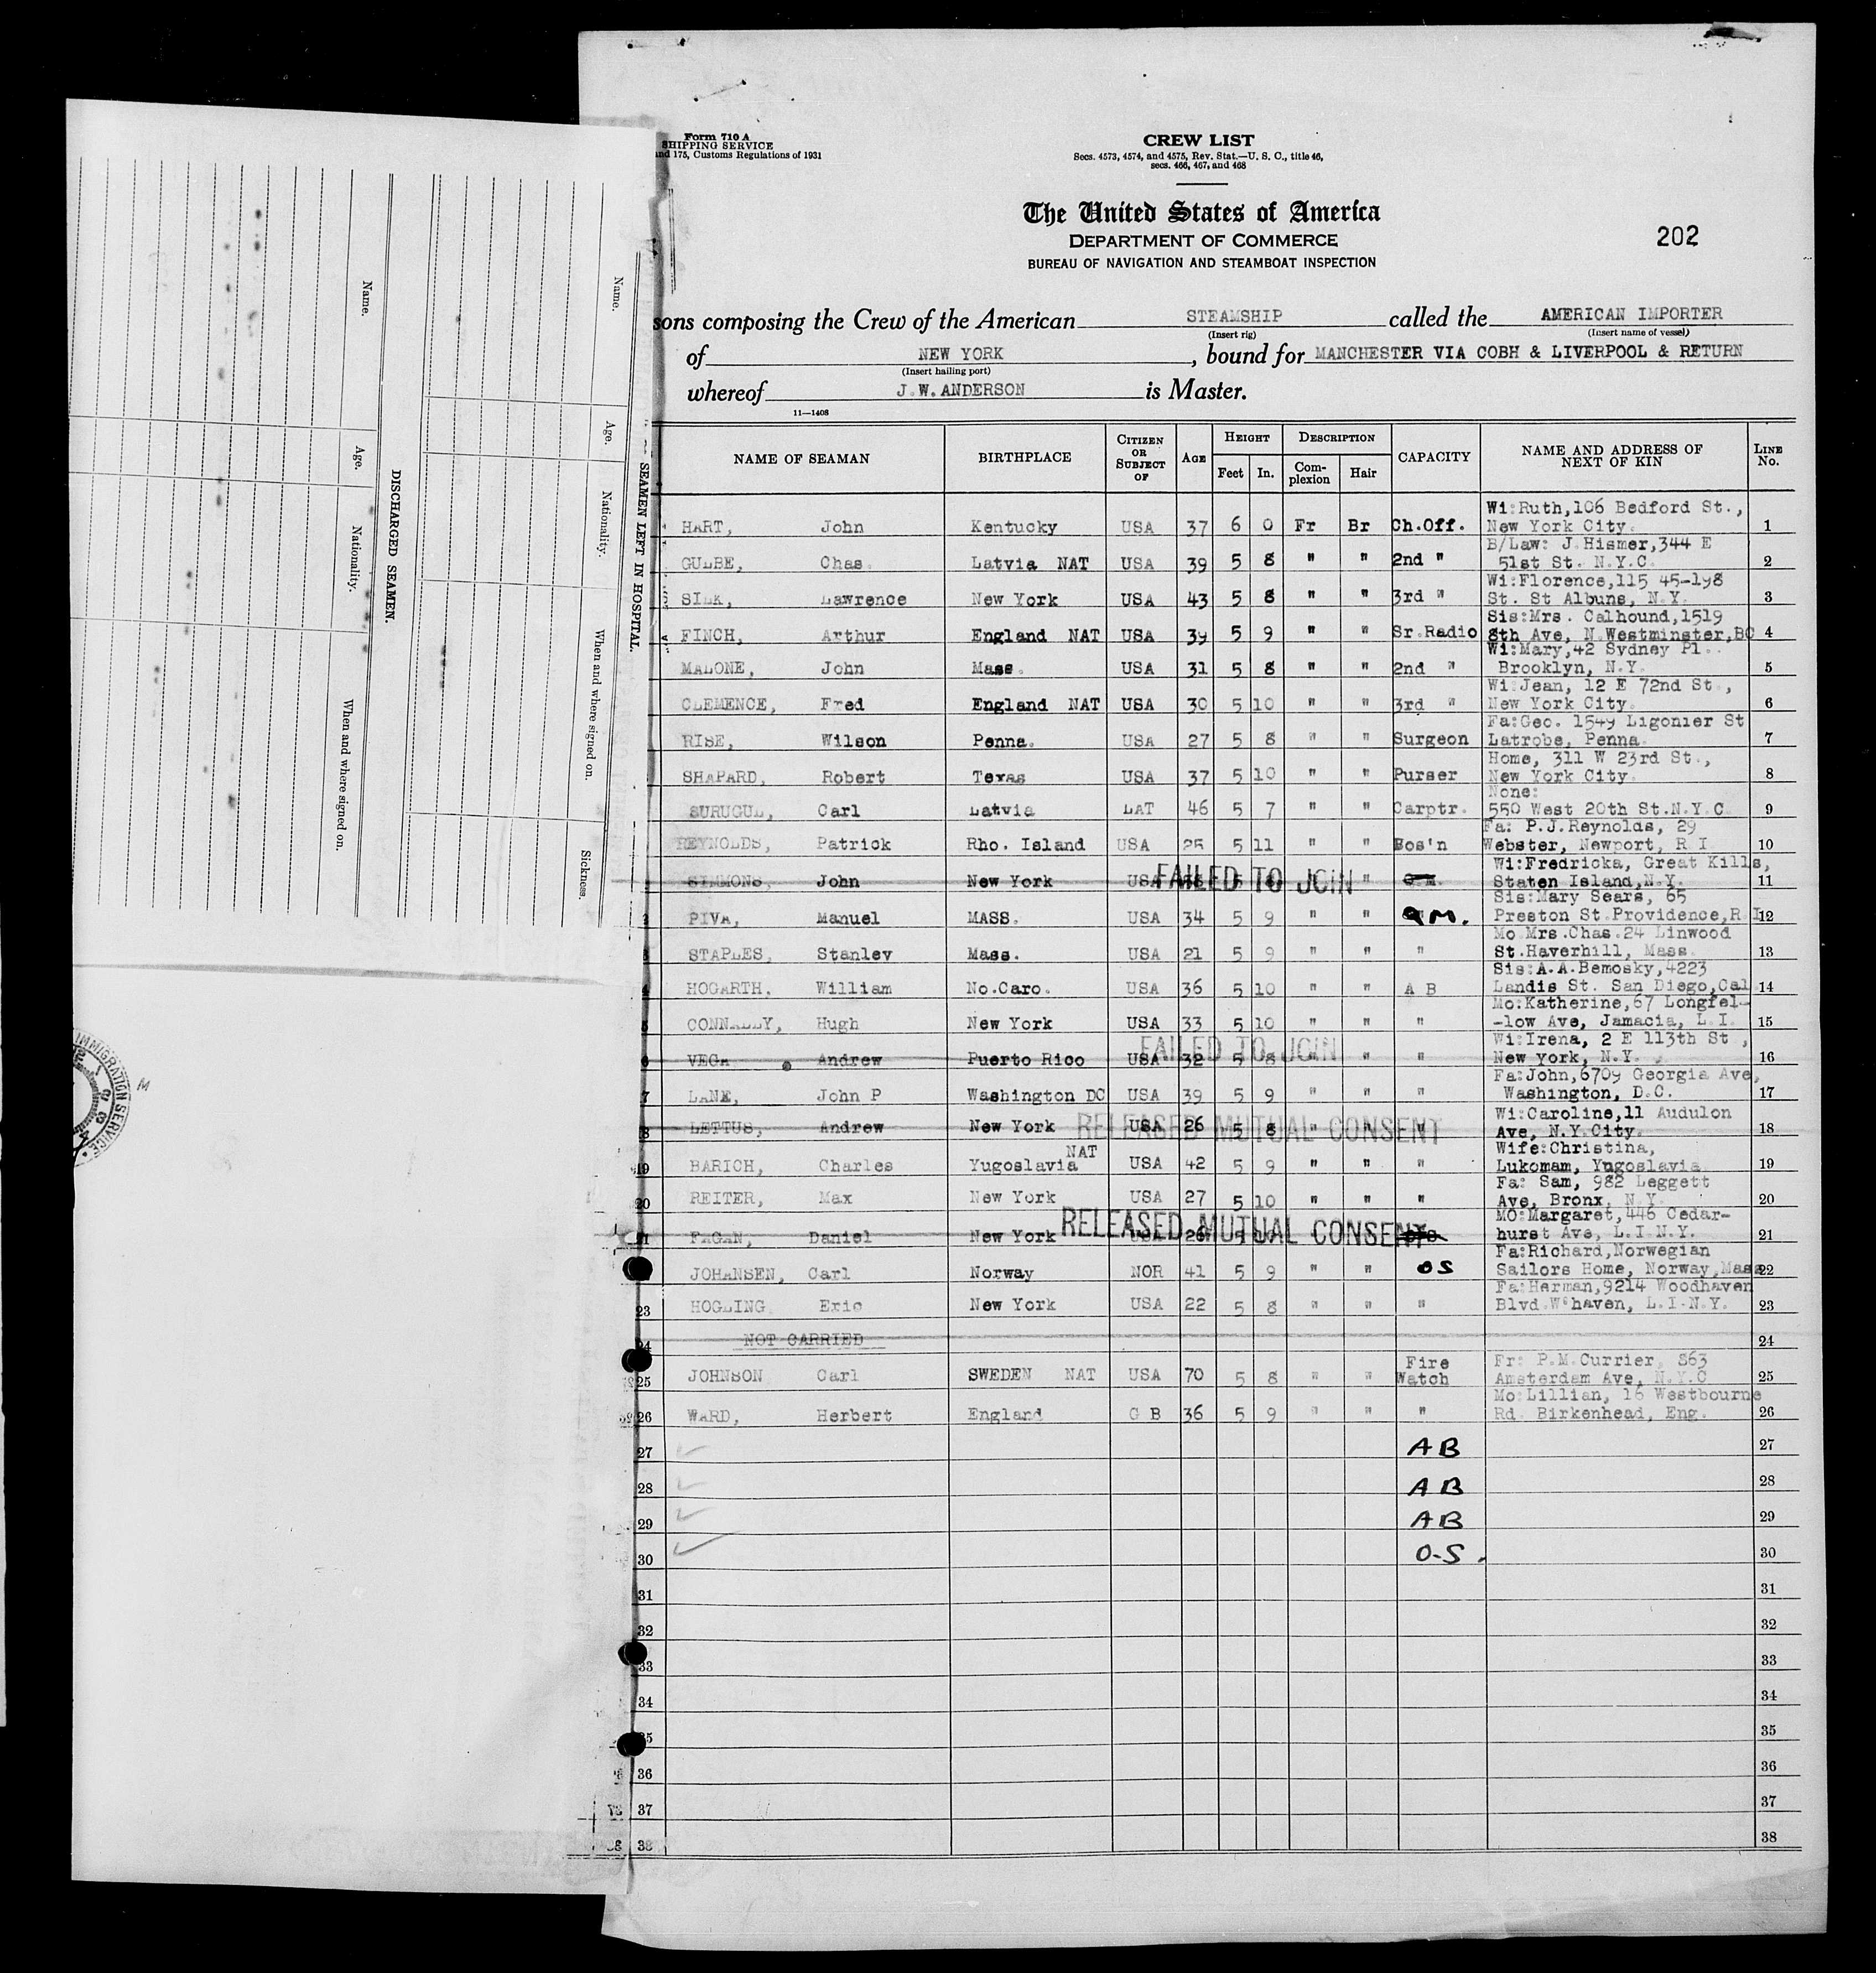 Form 710 A
SHIPPING SERVICE
and 175, Customs Regulations of 1931
CREW LIST
Secs. 4573, 4574, and 4575, Rev. Stat.—U. S. C., title 46,
secs. 466, 467, and 468
The United States of America
DEPARTMENT OF COMMERCE
BUREAU OF NAVIGATION AND STEAMBOAT INSPECTION
202
sons composing the Crew of the American STEAMSHIP called the AMERICAN IMPORTER
(Insert rig) (Insert name of vessel)
of NEW YORK, bound for MANCHESTER VIA COBH & LIVERPOOL & RETURN
(Insert hailing port)
whereof J.W.ANDERSON is Master.
11—1408
NAME OF SEAMAN BIRTHPLACE CITIZEN OR SUBJECT OF AGE HEIGHT Feet In. DESCRIPTION Complexion Hair CAPACITY NAME AND ADDRESS OF NEXT OF KIN LINE No.
Wi:Ruth,106 Bedford St.,
HART, John Kentucky USA 37 6 0 Fr Br Ch.Off. New York City. 1
B/Law: J.Hismer,344 E
GULBE, Chas. Latvia NAT USA 39 5 8 " " 2nd " 51st St. N.Y.C. 2
Wi:Florence,115 45-198
SILK, Lawrence New York USA 43 5 8 " " 3rd " St. St Albuns, N.Y. 3
Sis:Mrs. Calhound,1519
FINCH, Arthur England NAT USA 39 5 9 " " Sr.Radio 8th Ave, N.Westminster,BC 4
Wi:Mary,42 Sydney Pl.
MALONE, John Mass. USA 31 5 8 " " 2nd " Brooklyn, N.Y. 5
Wi:Jean, 12 E 72nd St.,
CLEMENCE, Fred England NAT USA 30 5 10 " " 3rd " New York City. 6
Fa:Geo. 1549 Ligonier St
RISE, Wilson Penna. USA 27 5 8 " " Surgeon Latrobe, Penna. 7
Home, 311 W 23rd St.,
SHAPARD, Robert Texas USA 37 5 10 " " Purser New York City. 8
None:
SURUGUL, Carl Latvia LAT 46 5 7 " " Carptr. 550 West 20th St.N.Y.C. 9
Fa: P.J.Reynolds, 29
REYNOLDS, Patrick Rho. Island USA 25 5 11 " " Bos'n Webster, Newport, R I. 10
Wi:Fredricka, Great Kills,
SIMMONS, John New York USA FAILED TO JOIN 5 " Staten Island,N.Y. 11
Sis:Mary Sears, 65
PIVA, Manuel MASS. USA 34 5 9 " " Q M. Preston St.Providence,R.I. 12
Mo Mrs.Chas.24 Linwood
STAPLES, Stanley Mass. USA 21 5 9 " " " St.Haverhill, Mass. 13
Sis:A.A.Bemosky,4223
HOGARTH, William No.Caro. USA 36 5 10 " " A B Landis St. San Diego,Cal. 14
Mo:Katherine,67 Longfel-
CONNALLY, Hugh New York USA 33 5 10 " " " -low Ave, Jamacia, L.I. 15
Wi:Irena, 2 E 113th St.,
VEGA Andrew Puerto Rico USA 32 5 8 FAILED TO JOIN " " " New York, N.Y. 16
Fa:John,6709 Georgia Ave,
LANE, John P Washington DC USA 39 5 9 " " " Washington, D.C. 17
Wi:Caroline,11 Audulon
LETTUS, Andrew New York USA 26 5 8 RELEASED MUTUAL CONSENT " " " Ave, N.Y.City. 18
Wife:Christina,
19 BARICH, Charles Yugoslavia NAT USA 42 5 9 " " " Lukomam, Yugoslavia 19
Fa: Sam, 982 Leggett
20 REITER, Max New York USA 27 5 10 " " " Ave, Bronx, N.Y. 20
MO:Margaret,446 Cedar-
FAGAN, Daniel New York USA RELEASED MUTUAL CONSENT hurst Ave, L.I.N.Y. 21
Fa:Richard,Norwegian
JOHANSEN, Carl Norway NOR 41 5 9 " " OS Sailors Home, Norway,Mass 22
Fa:Herman,9214 Woodhaven
23 HOGLING Eric New York USA 22 5 8 " " " Blvd.W'haven, L.I.N.Y. 23
24 NOT CARRIED 24
25 JOHNSON Carl SWEDEN NAT USA 70 5 8 " " Fire Watch Fr: P.M.Currier, 863 Amsterdam Ave, N.Y.C 25
Mo:Lillian, 16 Westbourne
26 WARD, Herbert England G B 36 5 9 " " " Rd. Birkenhead, Eng. 26
27 AB 27
28 AB 28
29 AB 29
30 O-S. 30
31 31
32 32
33 33
34 34
35 35
36 36
37 37
38 38
SEAMEN LEFT IN HOSPITAL.
Name. Age. Nationality. When and where signed on. Sickness.
DISCHARGED SEAMEN.
Name. Age. Nationality. When and where signed on.
IMMIGRATION SERVICE